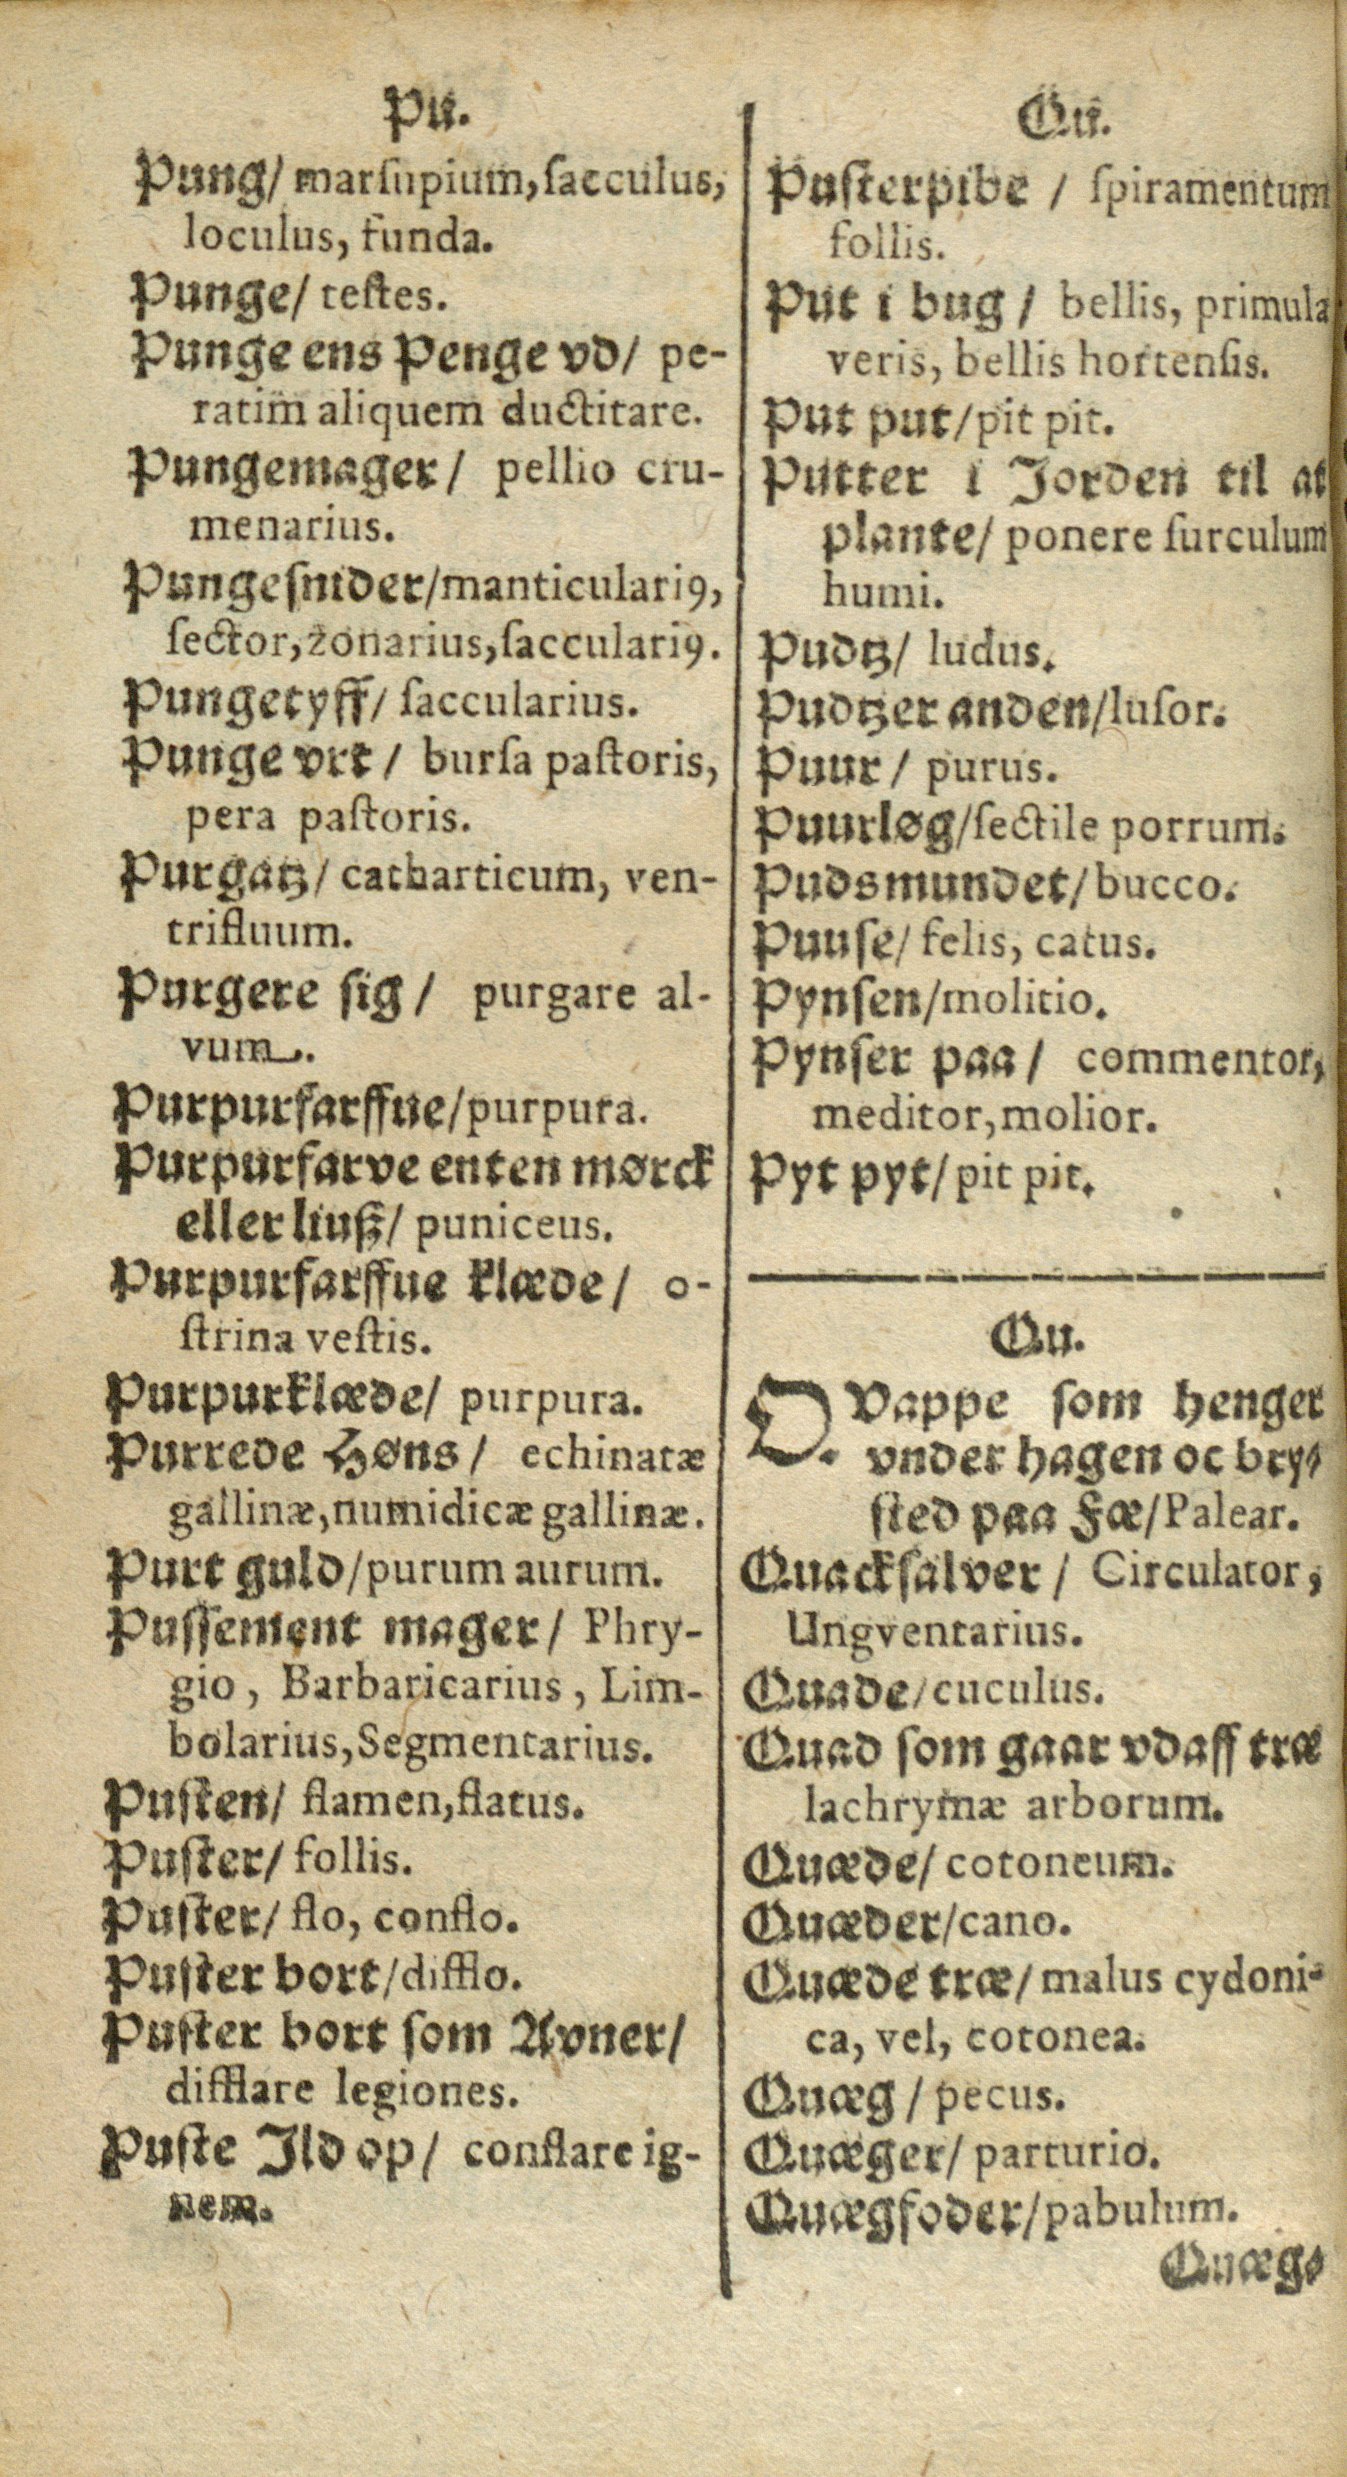 Pu.
Pung/ marſupium, ſacculus,
loculus, funda.
Punge/ teſtes.
Punge ens Penge vd/ pe-
ratim aliquem ductitare.
Pungemager/ pellio cru-
menarius.
Pungeſnider/manticulariꝰ,
ſector, zonarius, ſacculariꝰ.
Pungetyff/ ſaccularius.
Punge vrt/ burſa paſtoris,
pera paſtoris.
Purgatz/ catharticum, ven-
trifluum.
Purgere ſig/ purgare al-
vum.
Purpurfarffue/purpura.
Purpurfarve enten mørck
eller liuß/ puniceus.
Purpurfarffue klæde/ o-
ſtrina veſtis.
Purpurklæde/ purpura.
Purrede Høns/ echinatæ
gallinæ, numidicæ gallinæ.
Purt guld/purum aurum.
Puſſement mager/ Phry-
gio, Barbaricarius, Lim-
bolarius, Segmentarius.
Puſten/ flamen, flatus.
Puſter/ follis.
Puſter/ flo, conflo.
Puſter bort/difflo.
Puſter bort ſom Avner/
difflare legiones.
Puſte Ild op/ conflare ig-
nem.
Qu.
Puſterpibe / ſpiramentum
follis.
Put i bug / bellis, primula
veris, bellis hortenſis.
Put put/pit pit.
Putter i Jorden til at
plante/ ponere ſurculum
humi.
Pudtz/ ludus.
Pudtzer anden/luſor.
Puur/ purus.
Puurløg/ſectile porrum.
Pudsmundet/bucco.
Puuſe/ felis, catus.
Pynſen/molitio.
Pynſer paa/ commentor,
meditor, molior.
Pyt pyt/ pit pit.
Qu.
QVappe ſom henger
vnder hagen oc bry-
ſted paa Fæ/Palear.
Quackſalver/ Circulator,
Ungventarius.
Quade/cuculus.
Quad ſom gaar vdaff træ
lachrymæ arborum.
Quæde/ cotoneum.
Quæder/cano.
Quæde træ/ malus cydoni-
ca, vel, cotonea.
Quæg / pecus.
Quæger/ parturio.
Quægfoder/pabulum.
Quæg-